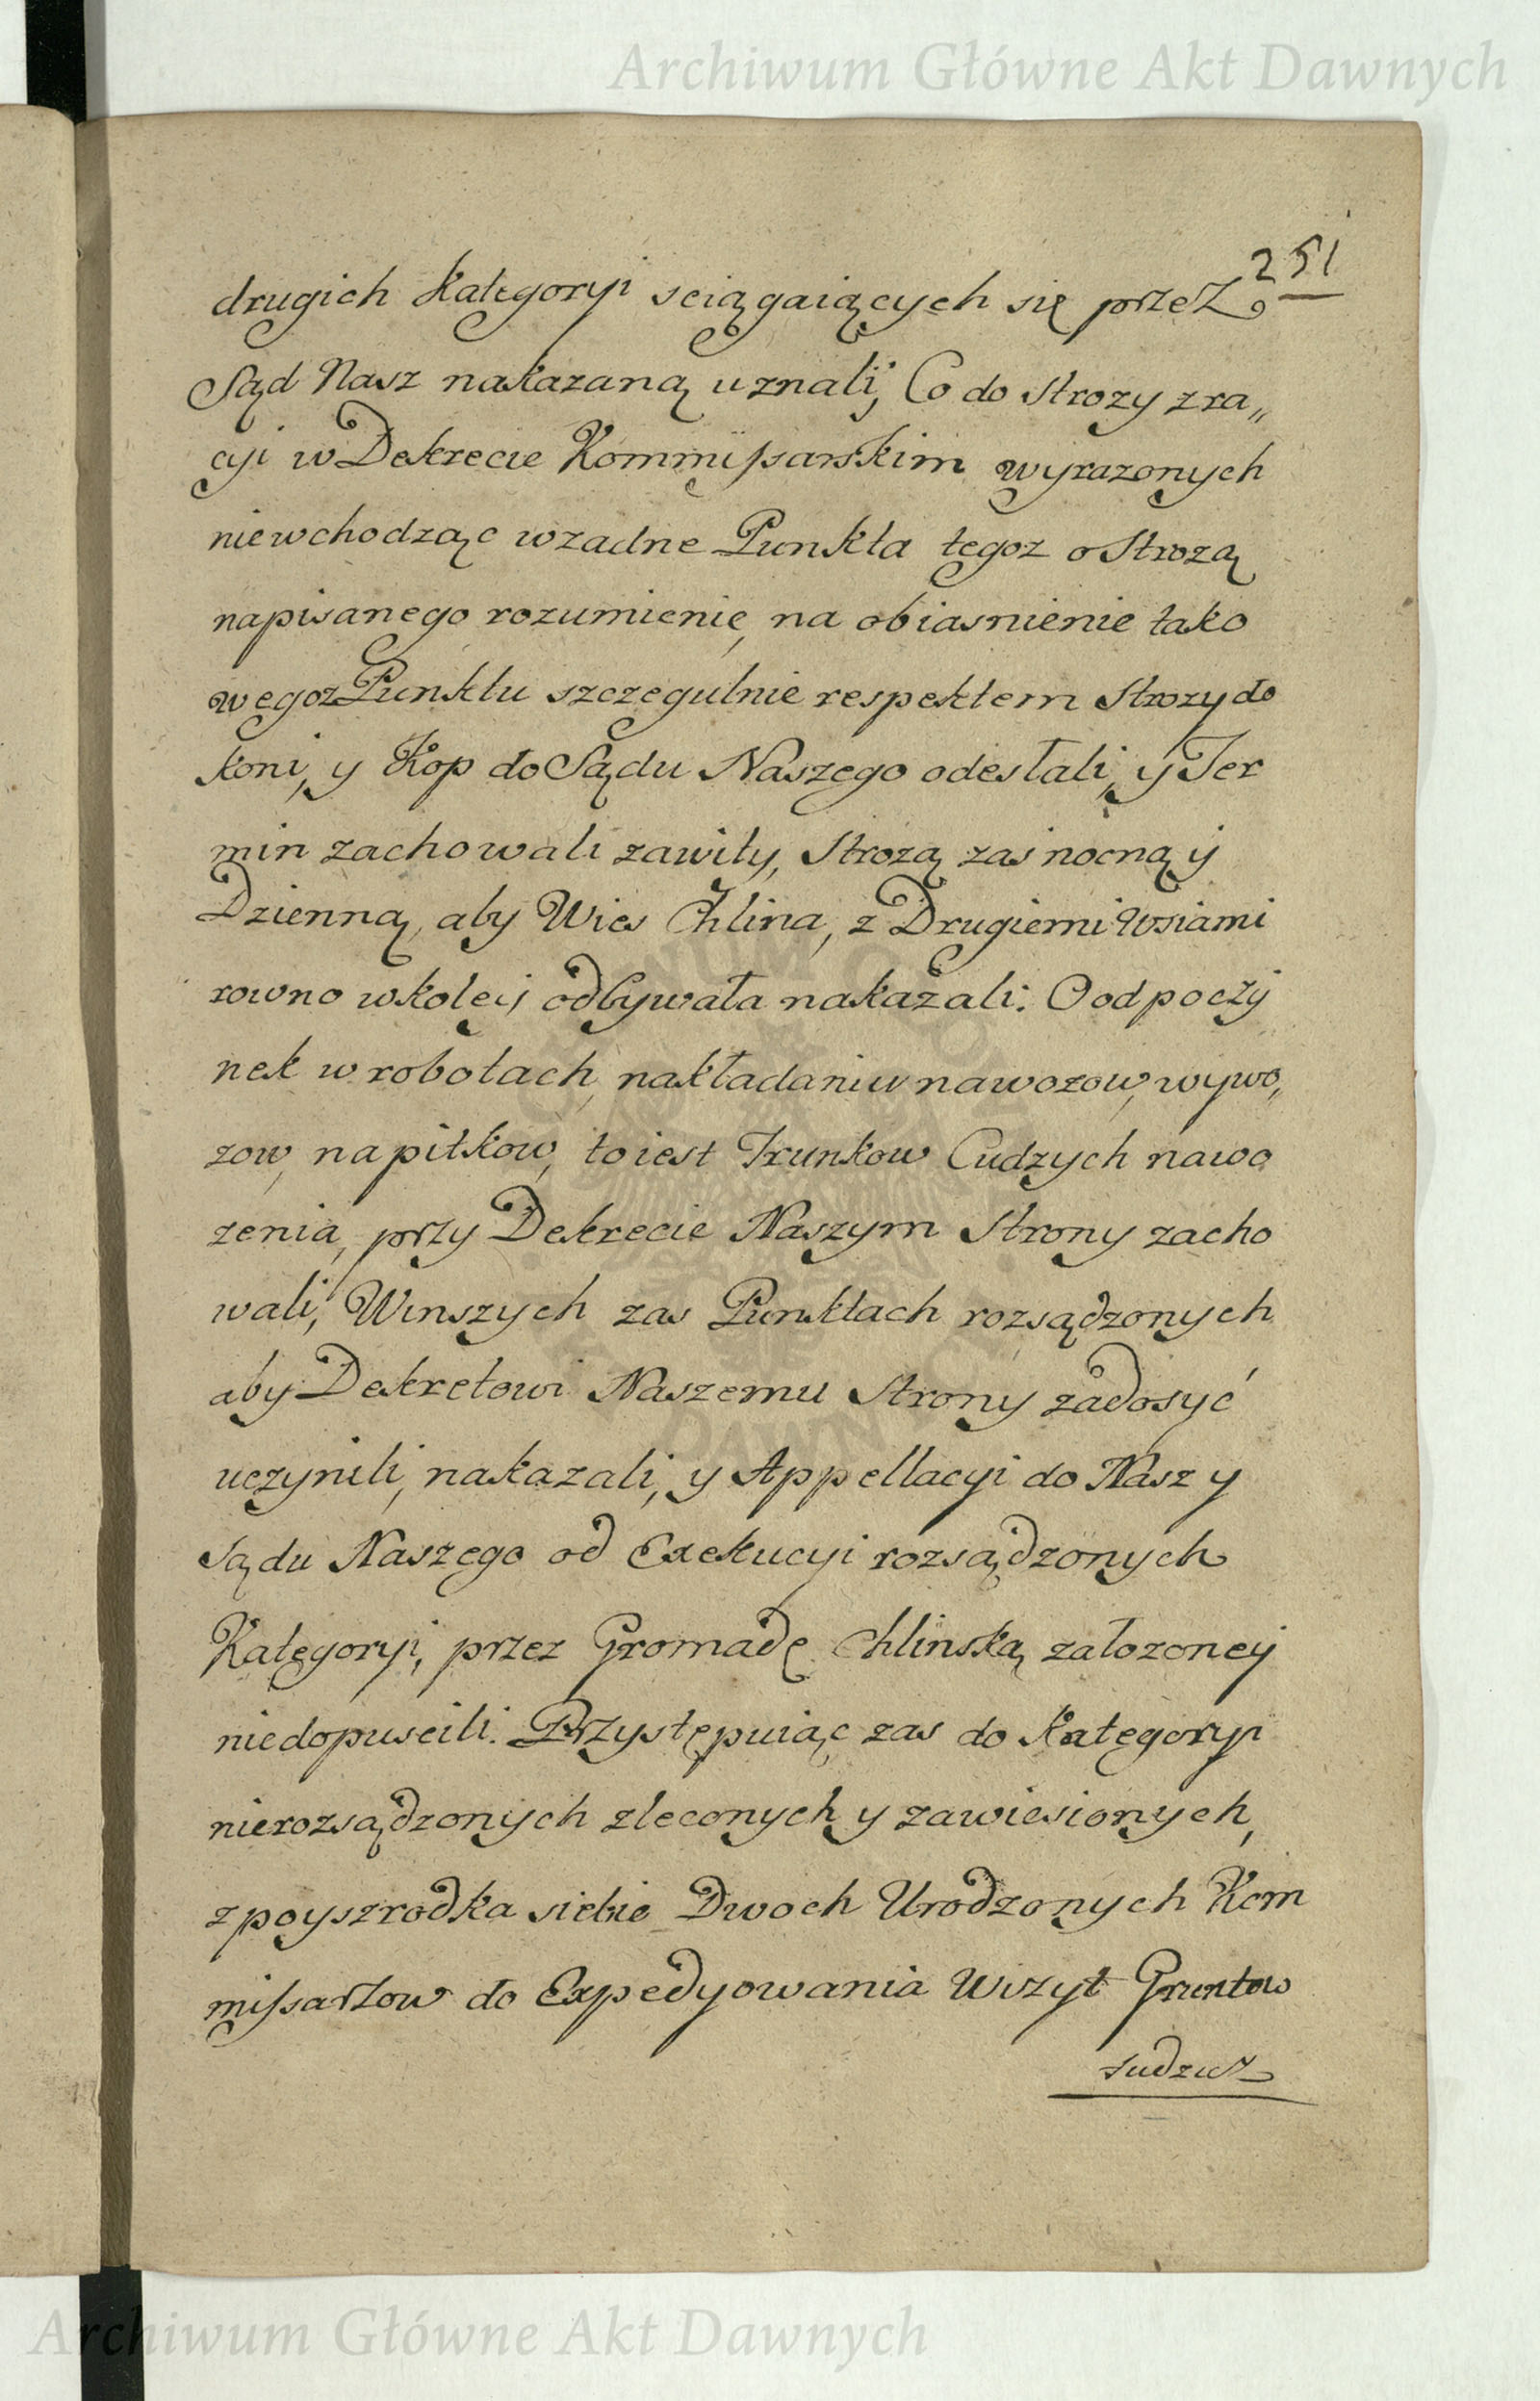 Archiwum Główne Akt Dawnych
251
drugich Kategoryi sciągaiących się przez
Sąd Nasz nakazaną uznali, Co do Strozy zra„
cyi w Dekrecie Kommissarskim wyrazonych
niewchodząc wzadne Punkta tegoz o Strozą
napisanego rozumienie, na obiasnienie tako
wegoz Punktu szczegulnie respektem Strozy do
koni, y Kop do Sądu Naszego odesłali, y Ter
min zachowali zawiły, Strozą zas nocną y
Dzienną, aby Wies Chlina, z Drugiemi Wsiami
rowno wkoleij odbywała nakazali: O odpoczy
nek w robotach, nakładaniu nawozow, wywo,
zow, napitkow, to iest Trunkow Cudzych nawo
zenia, przy Dekrecie Naszym Strony zacho
wali, Winszych zas Punktach rozsądzonych
aby Dekretowi Naszemu Strony zadosyć
uczynili, nakazali, y Appellacyi do Nas z y
Sądu Naszego od Exekucyi rozsądzonych
Kategoryi, przez Gromadę Chlinską załozoney
niedopuscili. Przystępuiąc zas do Kategoryi
nierozsądzonych zleconych y zawiesionych,
z poyszrodka siebie Dwoch Urodzonych Kom
missarzow do Expedyowania Wizyt Gruntow
tudziesz
Archiwum Główne Akt Dawnych